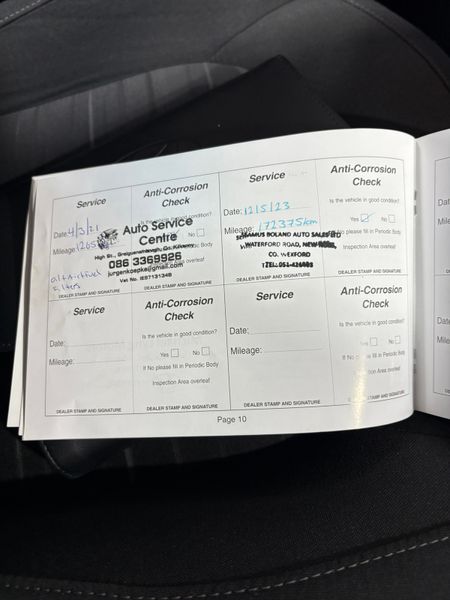 Service
Anti-Corrosion
Check
Date: 4/3/21
Is the vehicle in good condition?
Mileage:
No
Auto Service
Centre
086 3369926
jurgenkopka@gmail.com
DEALER STAMP AND SIGNATURE
DEALER STAMP AND SIGNATURE
Service
Anti-Corrosion
Check
Date: 12/5/23
Is the vehicle in good condition?
Mileage: 172375km
Yes
No
If No please fill in Periodic Body
Inspection Area overleaf
BOLAND AUTO SALES LTD
WATERFORD ROAD, NEW
CO. WEXFORD
TEL: 051-
DEALER STAMP AND SIGNATURE
DEALER STAMP AND SIGNATURE
Service
Anti-Corrosion
Check
Date:
Is the vehicle in good condition?
Mileage:
Yes
No
If No please fill in Periodic Body
Inspection Area overleaf
DEALER STAMP AND SIGNATURE
DEALER STAMP AND SIGNATURE
Service
Anti-Corrosion
Check
Date:
Is the vehicle in good condition?
Mileage:
Yes
No
If No please fill in Periodic Body
Inspection Area overleaf
DEALER STAMP AND SIGNATURE
DEALER STAMP AND SIGNATURE
Page 10